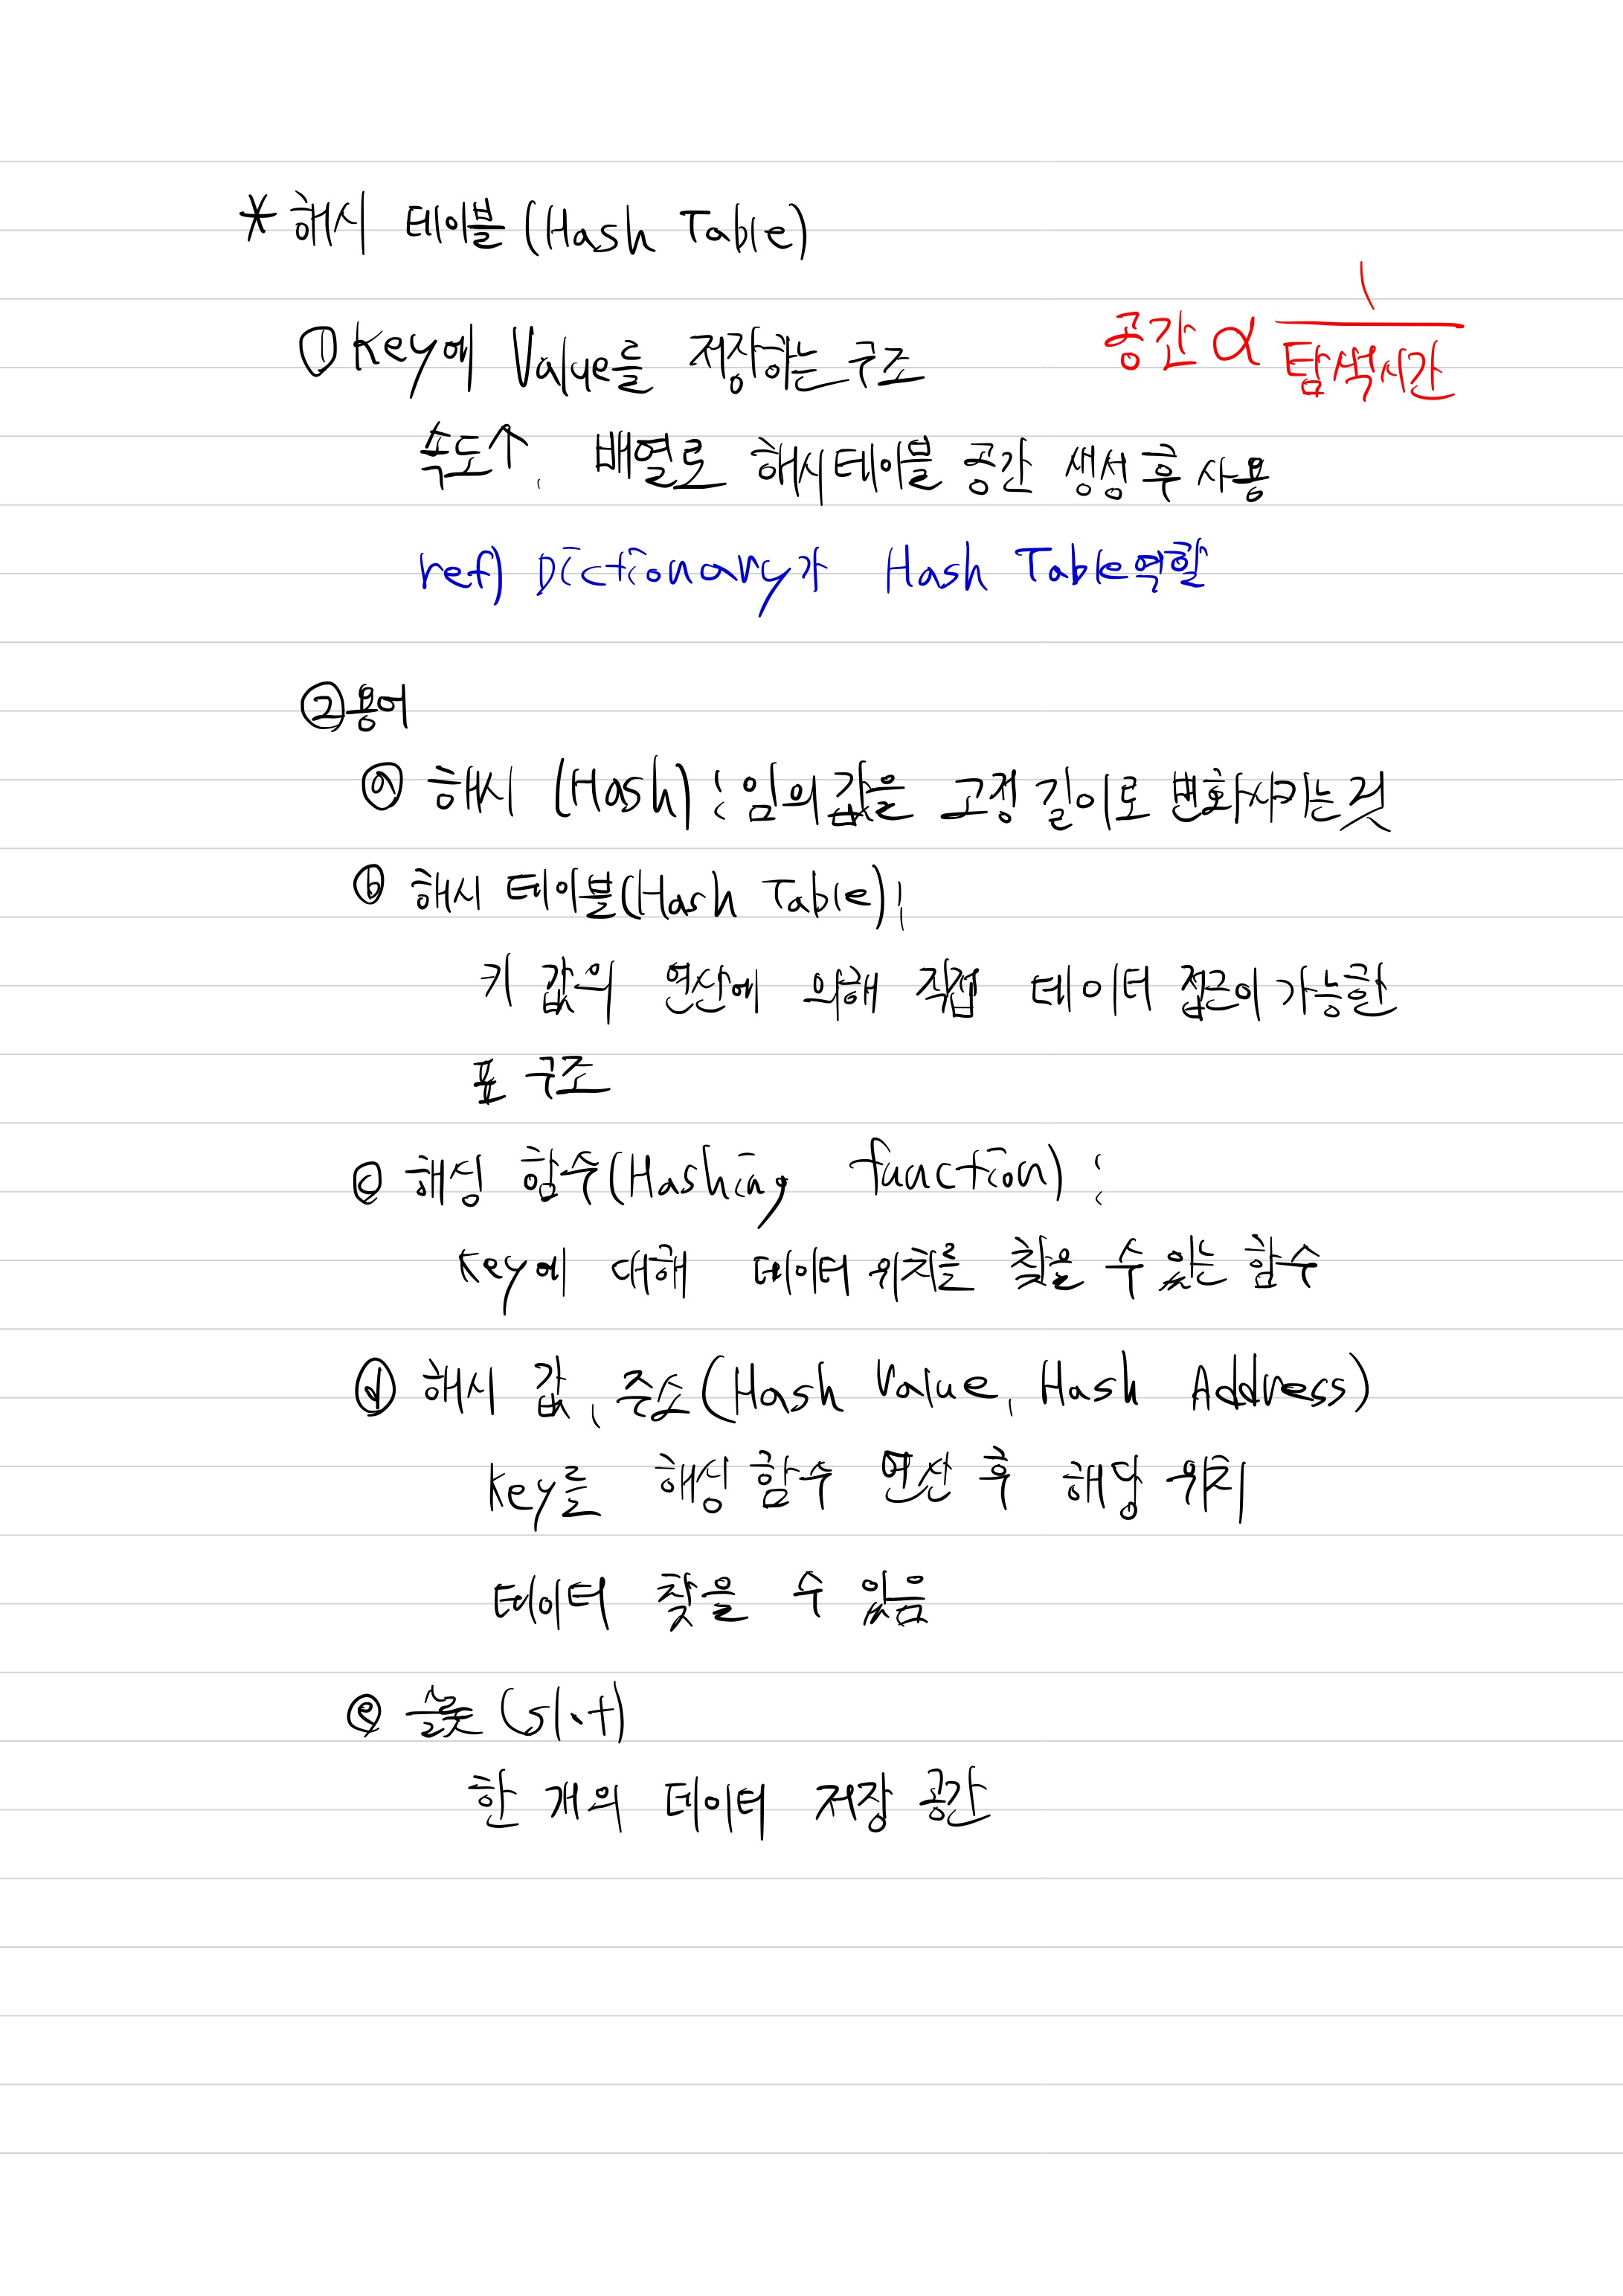 * 해시 테이블 (Hash Table)
① Key에 Value를 저장하는 구조
공간 ∝ 1/탐색시간
속도↑, 배열로 해시테이블 공간 생성 후 사용
ref) Dictionary가 Hash Table 역할
② 용어
ⓐ 해시 (Hash) : 임의 값을 고정 길이로 변화시키는 것
ⓑ 해시 테이블(Hash Table);
키 값의 연산에 의해 직접 데이터 접근이 가능한
표 구조
ⓒ 해싱 함수(Hashing function) :
Key에 대해 데이터 위치를 찾을 수 있는 함수
ⓓ 해시 값, 주소(Hash Value, Hash Address)
Key를 해싱 함수 연산 후 해당 위치
데이터 찾을 수 있음
ⓔ 슬롯 (slot)
한 개의 데이터 저장 공간